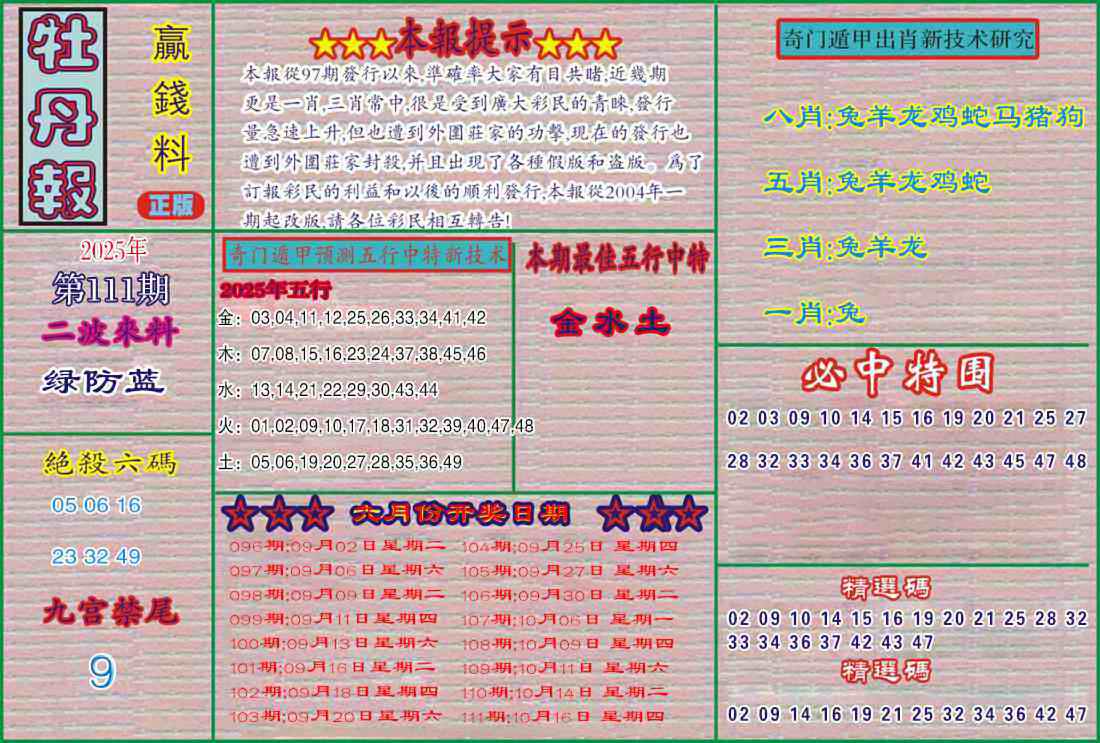 牡丹報
贏錢料
正版
★★★本報提示★★★
本報從97期發行以來,準確率大家有目共睹,近幾期
更是一肖,三肖常中,很是受到廣大彩民的青睞,發行
量急速上升,但也遭到外圍莊家的功擊,現在的發行也
遭到外圍莊家封殺,并且出現了各種假版和盜版。爲了
訂報彩民的利益和以後的順利發行,本報從2004年一
期起改版,請各位彩民相互轉告!
奇门遁甲出肖新技术研究
八肖:兔羊龙鸡蛇马猪狗
五肖:兔羊龙鸡蛇
三肖:兔羊龙
一肖:兔
2025年
第111期
二波來料
绿防蓝
奇门遁甲预测五行中特新技术
2025年五行
金：03,04,11,12,25,26,33,34,41,42
木：07,08,15,16,23,24,37,38,45,46
水：13,14,21,22,29,30,43,44
火：01,02,09,10,17,18,31,32,39,40,47,48
土：05,06,19,20,27,28,35,36,49
本期最佳五行中特
金水土
必中特围
02 03 09 10 14 15 16 19 20 21 25 27
28 32 33 34 36 37 41 42 43 45 47 48
絕殺六碼
05 06 16
23 32 49
九宫禁尾
9
☆☆☆ 六月份开奖日期 ☆☆☆
096期;09月02日星期二 104期;09月25日 星期四
097期;09月06日星期六 105期;09月27日 星期六
098期;09月09日星期二 106期;09月30日 星期二
099期;09月11日星期四 107期;10月06日 星期一
100期;09月13日星期六 108期;10月09日 星期四
101期;09月16日星期二 109期;10月11日 星期六
102期;09月18日星期四 110期;10月14日 星期二
103期;09月20日星期六 111期;10月16日 星期四
精選碼
02 09 10 14 15 16 19 20 21 25 28 32
33 34 36 37 42 43 47
精選碼
02 09 14 16 19 21 25 32 34 36 42 47